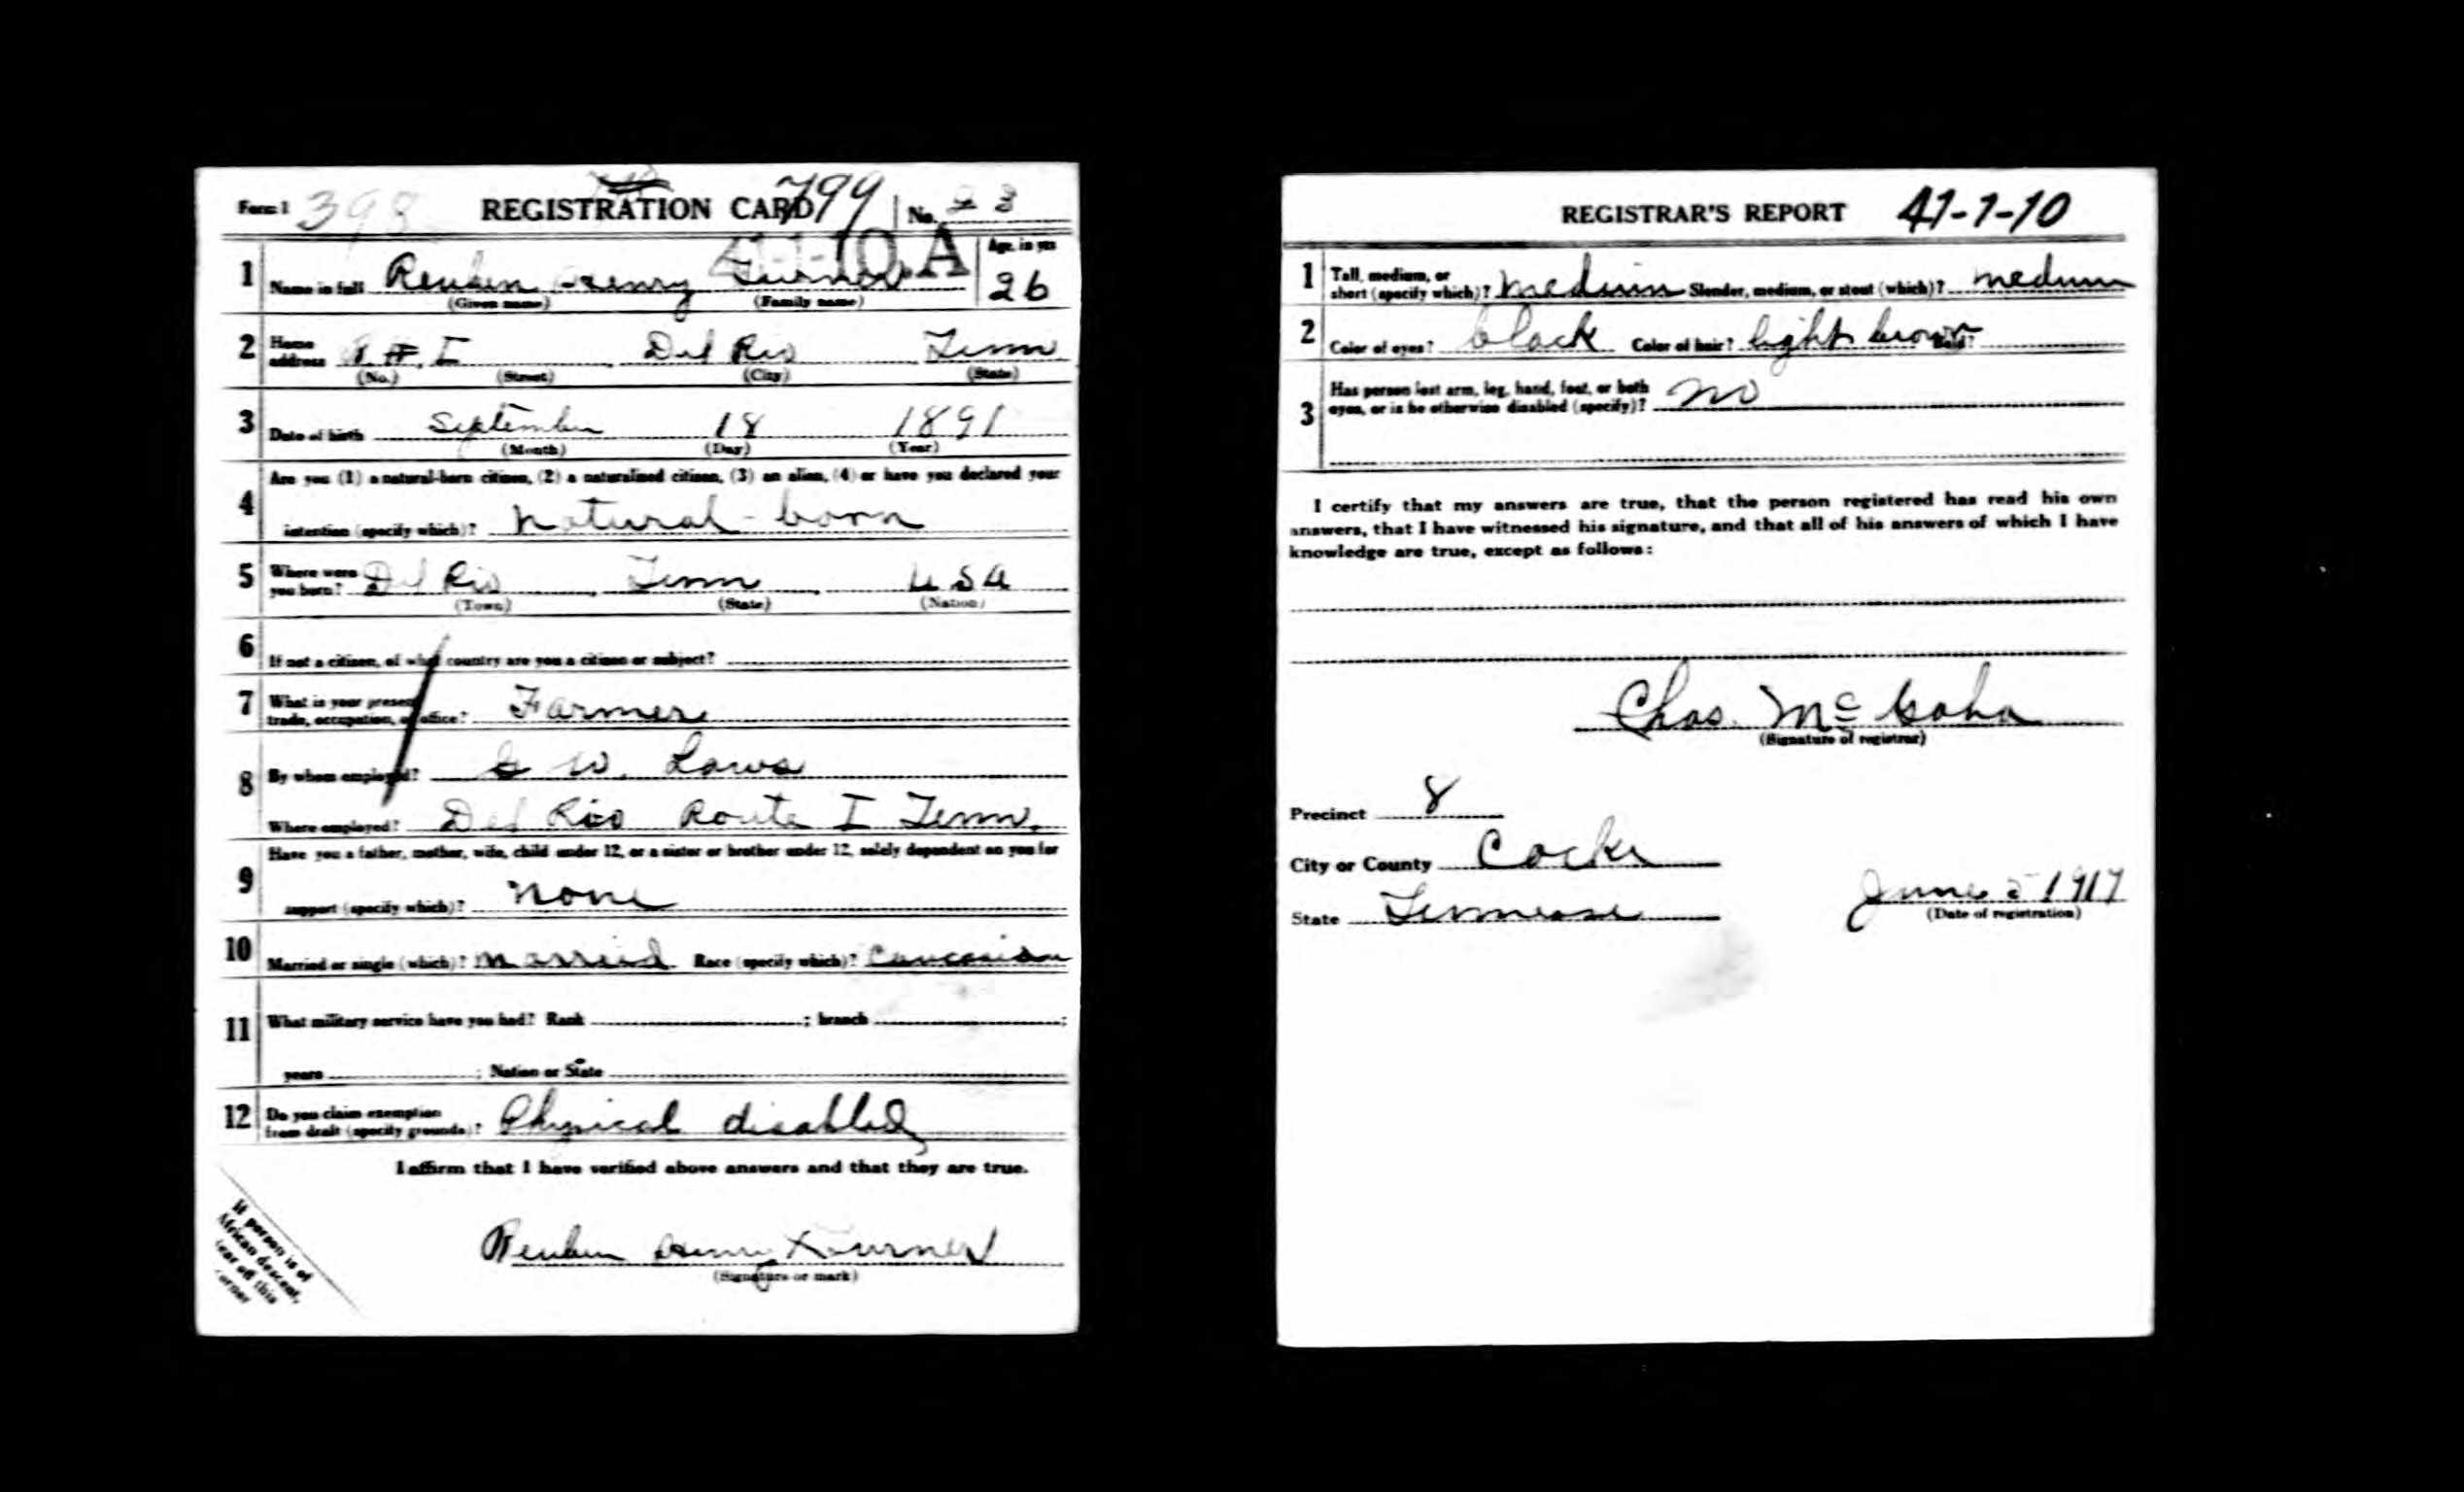 Form 1 398 REGISTRATION CARD 799 No. 23
41-1-10 A
1 Name in full Reuben Henry Turner Age, in yrs 26
(Given name) (Family name)
2 Home address R. # I Del Rio Tenn
(No.) (Street) (City) (State)
3 Date of birth September 18 1891
(Month) (Day) (Year)
4 Are you (1) a natural-born citizen, (2) a naturalized citizen, (3) an alien, (4) or have you declared your
intention (specify which)? natural-born
5 Where were you born? Del Rio, Tenn, USA
(Town) (State) (Nation)
6 If not a citizen, of what country are you a citizen or subject?
7 What is your present trade, occupation, or office? Farmer
8 By whom employed? G W. Laws
Where employed? Del Rio Route I Tenn.
9 Have you a father, mother, wife, child under 12, or a sister or brother under 12, solely dependent on you for
support (specify which)? none
10 Married or single (which)? Married Race (specify which)? Caucasian
11 What military service have you had? Rank ; branch ;
years ; Nation or State
12 Do you claim exemption from draft (specify grounds)? Physical disabled
I affirm that I have verified above answers and that they are true.
Reuben Henry Turner
(Signature or mark)
If person is of
African descent,
tear off this
corner
REGISTRAR'S REPORT 41-1-10
1 Tall, medium, or short (specify which)? medium Slender, medium, or stout (which)? medium
2 Color of eyes? black Color of hair? light brown Bald?
3 Has person lost arm, leg, hand, foot, or both
eyes, or is he otherwise disabled (specify)? no
I certify that my answers are true, that the person registered has read his own
answers, that I have witnessed his signature, and that all of his answers of which I have
knowledge are true, except as follows:
Chas. McGaha
(Signature of registrar)
Precinct 8
City or County Cocke
State Tennessee June 5 1917
(Date of registration)